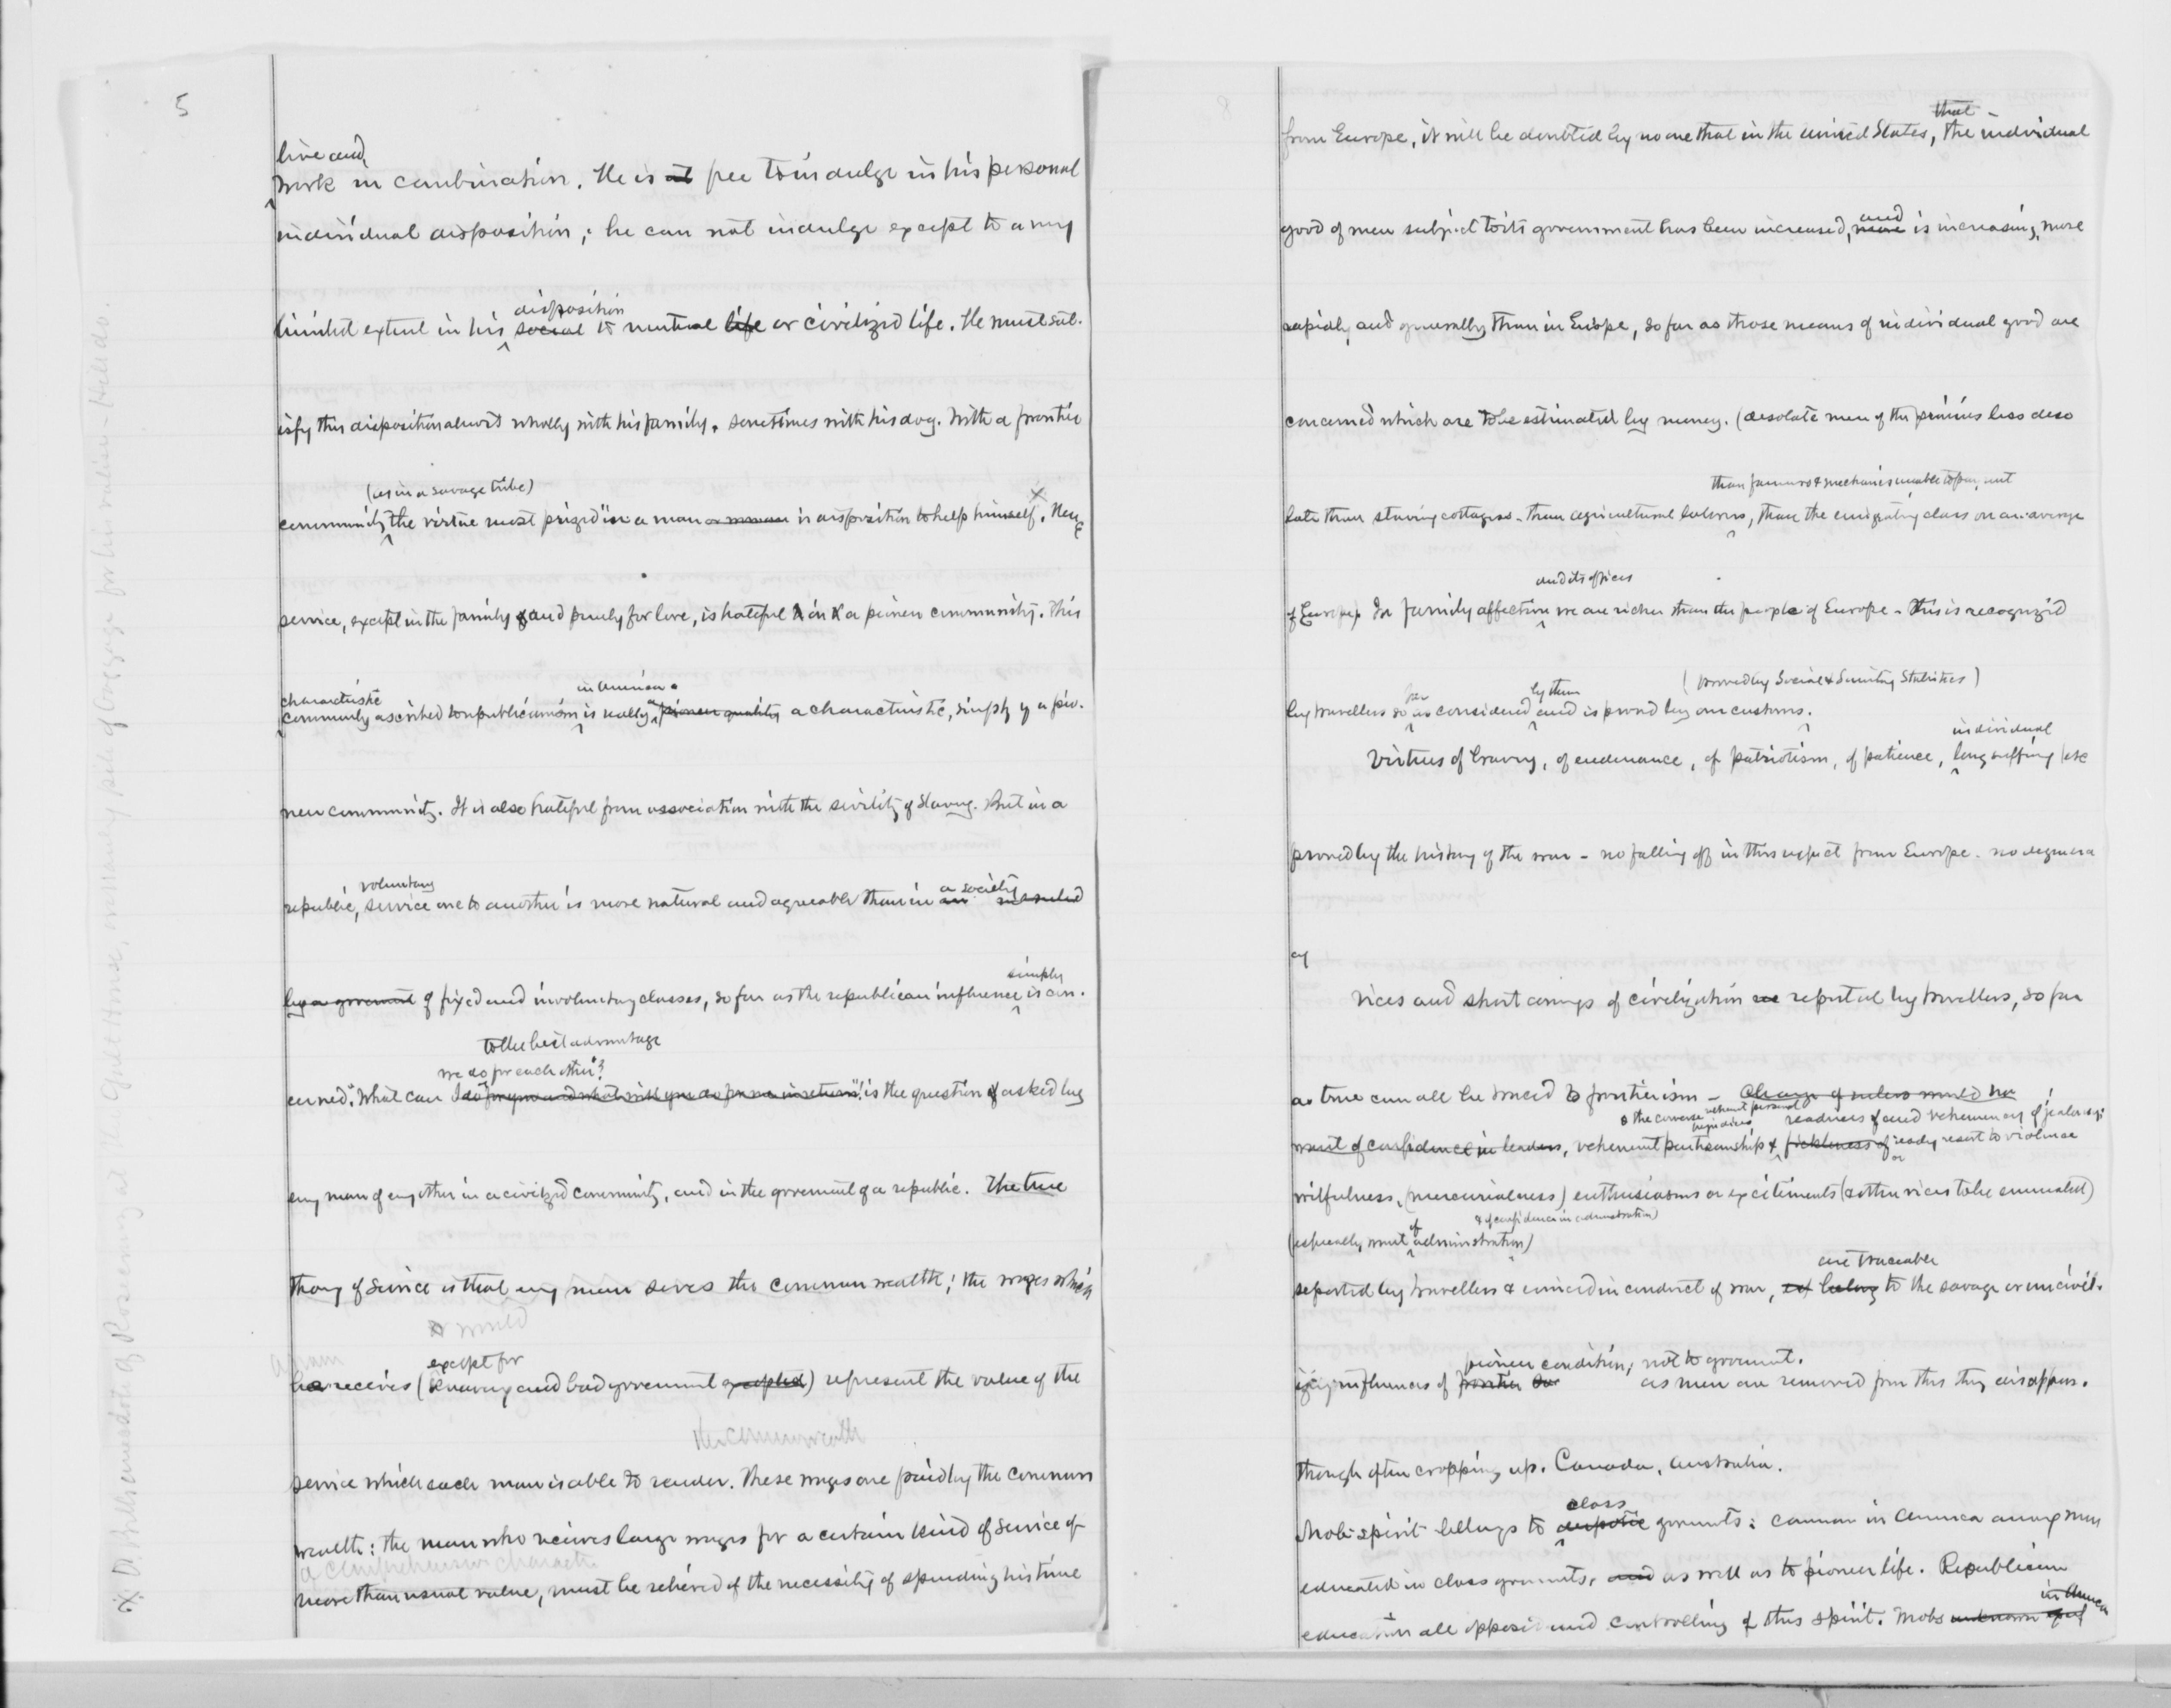 5
live and
work in combination. He is at free to indulge in his personal
individual disposition; he can not indulge except to a very
disposition
limited extent in his social to mutual life or civilized life. He must sat-
isfy this disposition almost wholly with his family, sometimes with his dog. With a frontier
(as in a savage tribe)
community the virtue most prized in a man is disposition to help himself. Hence
service, except in the family and purely for love, is hateful in a pioneer community. This
characteristic
in America
commonly ascribed to republicanism is really a pioneer quality a characteristic, simply of a pio-
neer community. It is also hateful from association with the servility of slavery. But in a
voluntary
a society
republic, service one to another is more natural and agreeable than in an
simply
by a government of fixed and involuntary classes, so far as the republican influence is con-
to the best advantage
we do for each other?
cerned. "What can I do for you and what will you do for me in return" is the question asked by
any man of any other in a civilized community, and in the government of a republic. The true
theory of service is that any man serves the common wealth; the wages which
would
a man
except for
he receives (knavery and bad government excepted) represent the value of the
the commonwealth
service which each man is able to render. These wages are paid by the common
wealth: the man who receives large wages for a certain kind of service of
a comprehensive character
more than usual value, must be relieved of the necessity of spending his time
X. D. Hills anecdote of Rosecrans at the Galt House, missing piece of baggage for his valise - Hilldo.
8
that
from Europe, it will be doubted by no one that in the United States, the individual
and
good of men subject to its government has been increased, more is increasing, more
rapidly and generally than in Europe, so far as those means of individual good are
concerned which are to be estimated by money. (desolate men of the prairies less deso
than farmers & mechanics unable to pay rent
late than starving cottagers - than agricultural laborers, than the emigrating class on an average
and its offices
of Europe. In family affection we are richer than the people of Europe - this is recognized
(proved by Social & Sanitary Statistics)
far
by them
by travellers so as considered and is proved by our customs.
individual
Virtues of bravery, of endurance, of patriotism, of patience, long suffering etc
proved by the history of the war - no falling off in this respect from Europe. no degenera
cy
Vices and short comings of civilization reported by travellers, so far
as true can all be traced to frontierism - change of rulers would not
& the converse vehement personal prejudices
readiness and vehemency of jealousy;
want of confidence in leaders, vehement partisanship & fickleness of ready resort to violence
or
wilfulness, (mercurialness) enthusiasms or excitements (& other vices to be enumerated)
& of confidence in administration)
of
(especially want administration)
are traceable
reported by travellers & evinced in conduct of war, belong to the savage or uncivil-
pioneer condition, not to government.
izing influences of frontier as men are removed from this they disappear.
though often cropping up. Canada, Australia.
class
Mob-spirit belongs to despotic governments: common in America among men
educated in class governments, and as well as to pioneer life. Republican
in America
education all opposed and controlling of this spirit. Mobs unknown